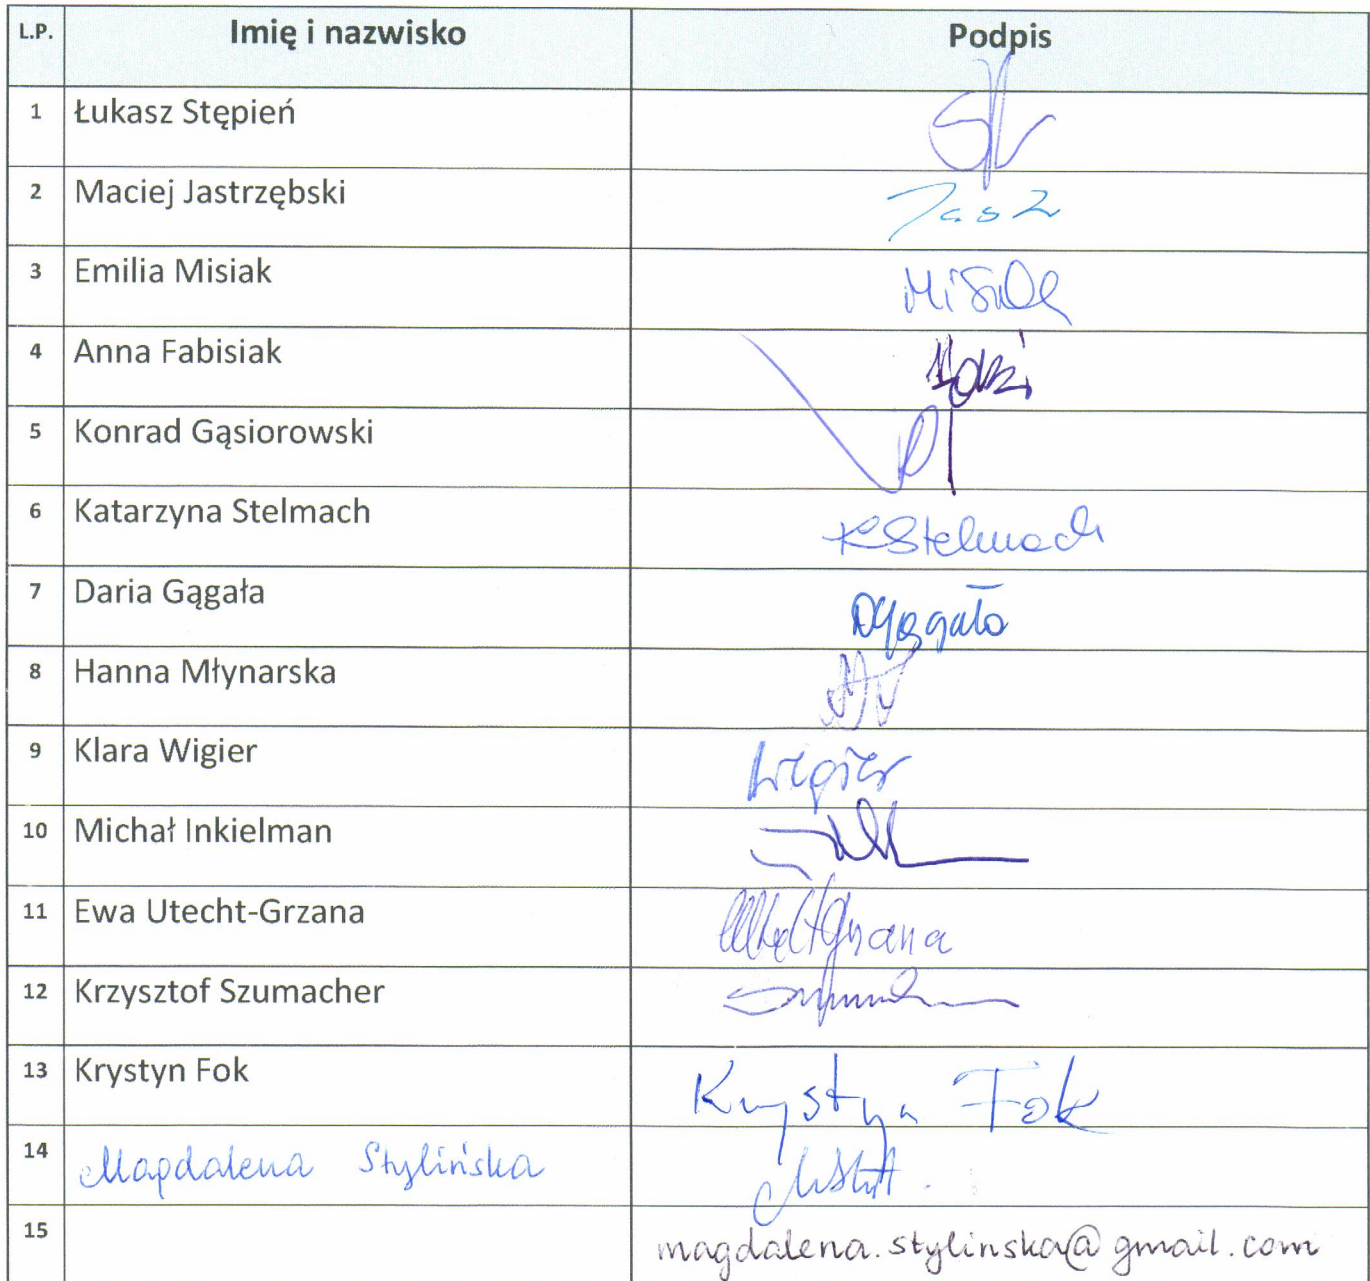 L.P. Imię i nazwisko Podpis
1 Łukasz Stępień
2 Maciej Jastrzębski
3 Emilia Misiak
4 Anna Fabisiak
5 Konrad Gąsiorowski
6 Katarzyna Stelmach KStelmach
7 Daria Gągała DGągała
8 Hanna Młynarska
9 Klara Wigier Wigier
10 Michał Inkielman
11 Ewa Utecht-Grzana
12 Krzysztof Szumacher
13 Krystyn Fok Krystyn Fok
14 Magdalena Stylińska
15 magdalena.stylinska@gmail.com